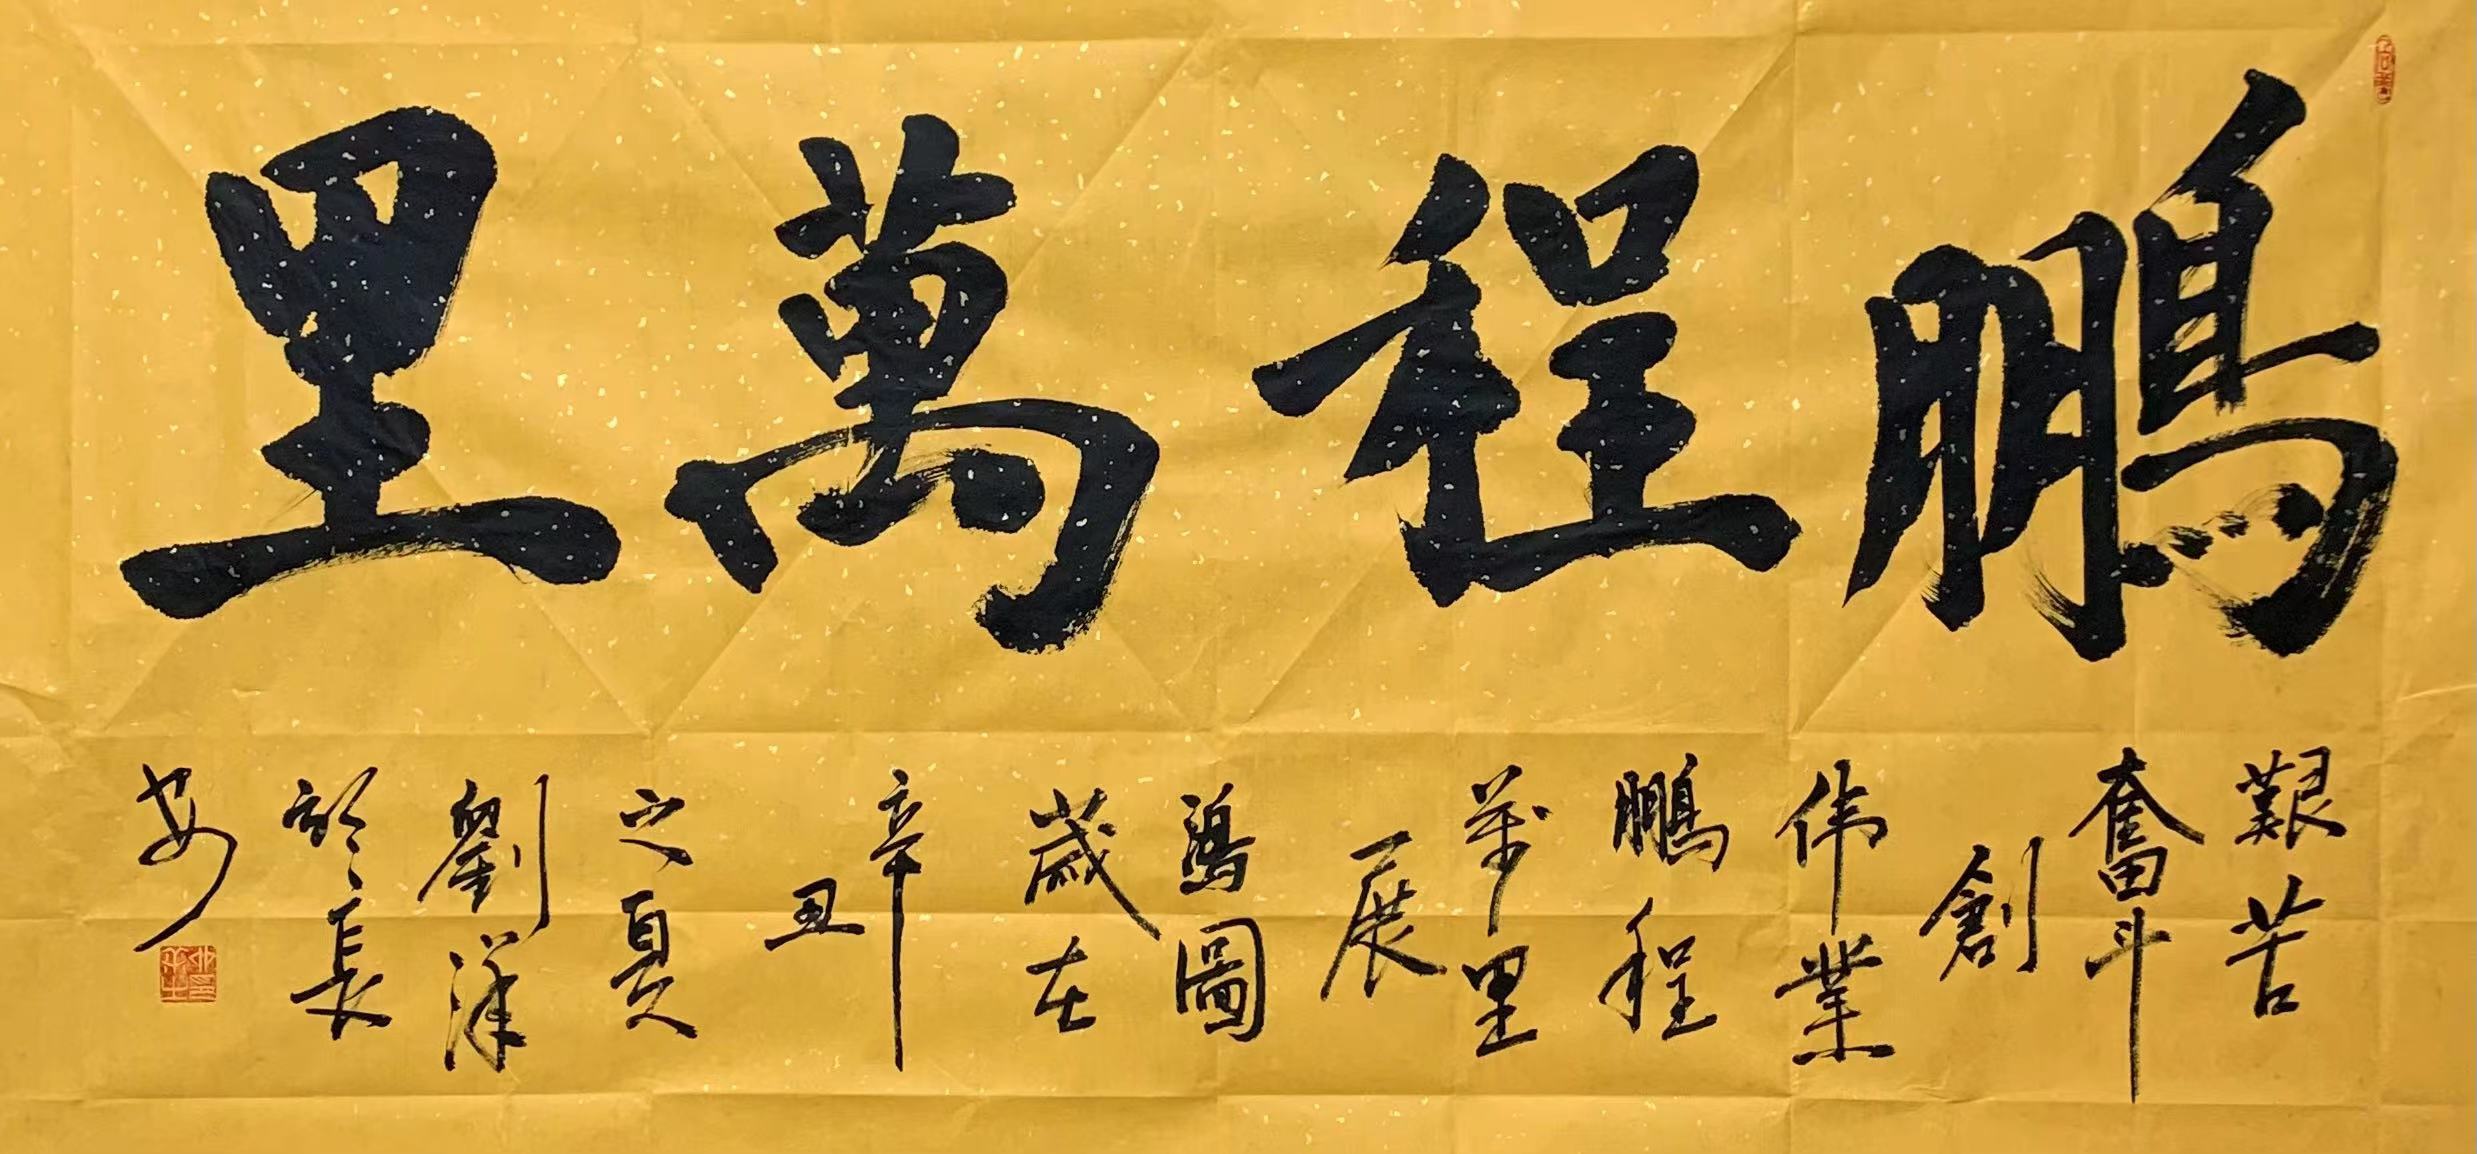 鵬程萬里
艱苦
奮斗
創
伟業
鵬程
萬里
展
鴻圖
歲在
辛
丑
之夏
劉洋
於長
安